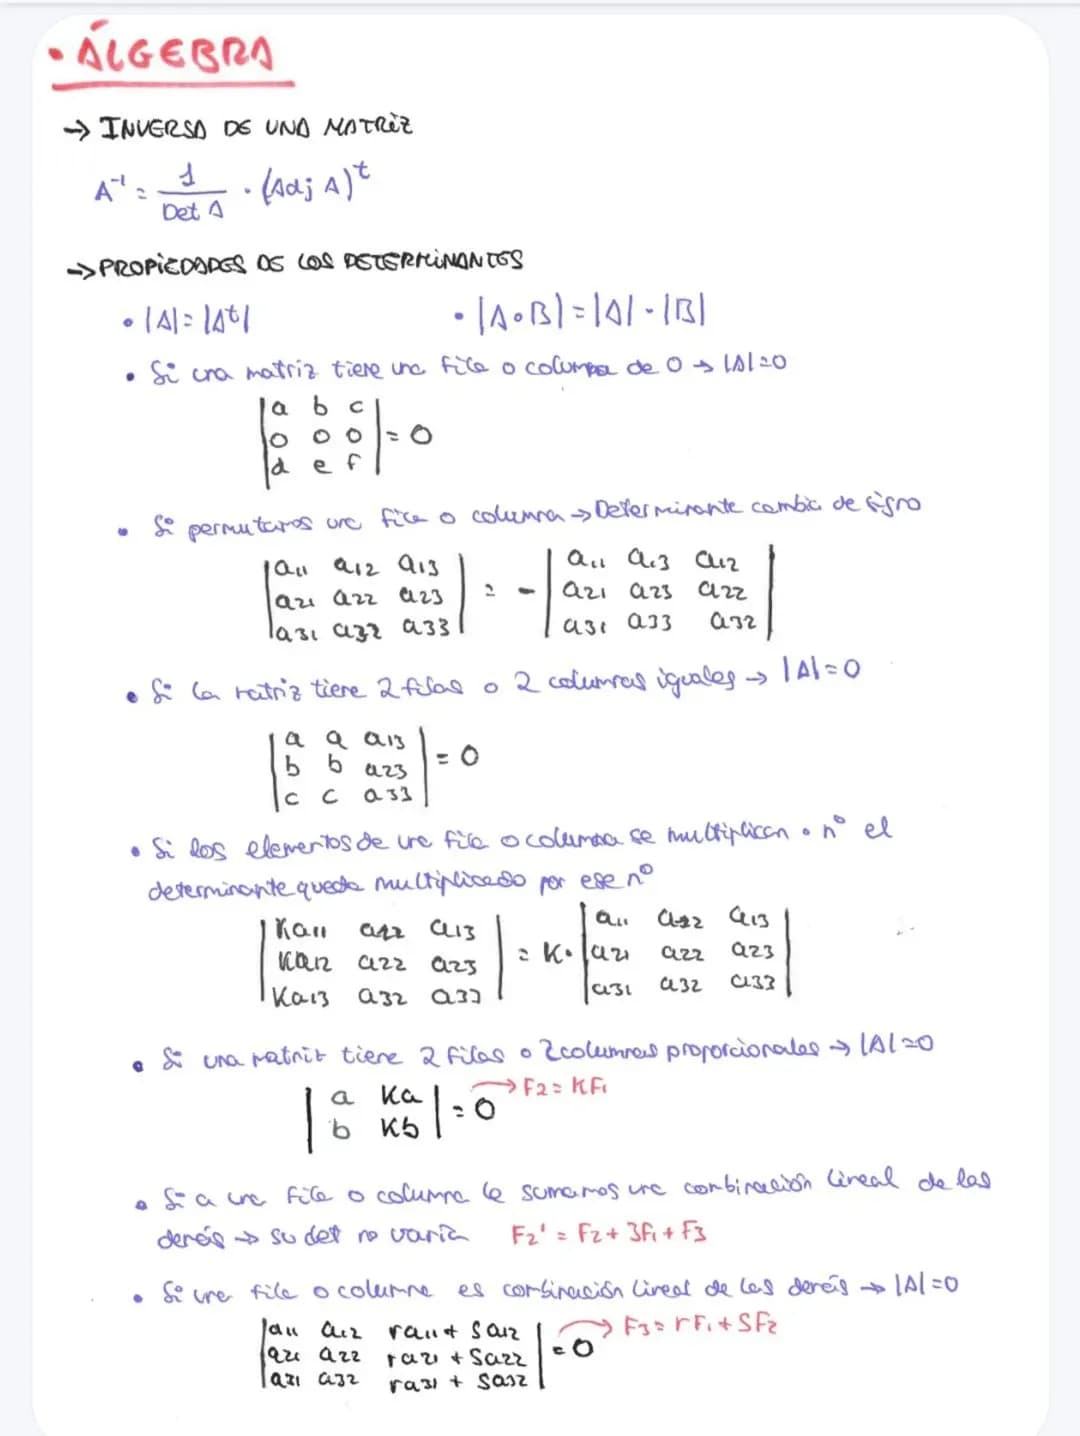 • ÁLGEBRA
→ INVERSA DE UNA MATRIZ
A⁻¹ = 1/Det A · (Adj A)ᵗ
→ PROPIEDADES DE LOS DETERMINANTES
• |A| = |Aᵗ| • |A∘B| = |A| · |B|
• Si una matriz tiene una fila o columna de 0 → |A| = 0
|a b c|
|0 0 0| = 0
|d e f|
• Si permutamos una fila o columna → Determinante cambia de signo
|a11 a12 a13| |a11 a13 a12|
|a21 a22 a23| = - |a21 a23 a22|
|a31 a32 a33| |a31 a33 a32|
• Si la matriz tiene 2 filas o 2 columnas iguales → |A| = 0
|a a a13|
|b b a23| = 0
|c c a33|
• Si los elementos de una fila o columna se multiplican · nº el
determinante queda multiplicado por ese nº
|Ka11 a12 a13| |a11 a12 a13|
|Ka12 a22 a23| = K· |a21 a22 a23|
|Ka13 a32 a33| |a31 a32 a33|
• Si una matriz tiene 2 filas o 2 columnas proporcionales → |A| = 0
|a Ka| = 0 → F2 = KF1
|b Kb|
• Si a una fila o columna le sumamos una combinación lineal de las
demás → su det no varía F2' = F2 + 3F1 + F3
• Si una fila o columna es combinación lineal de las demás → |A| = 0
|a11 a12 ra11 + sa12| → F3 = rF1 + SF2
|a21 a22 ra21 + sa22| = 0
|a31 a32 ra31 + sa32|